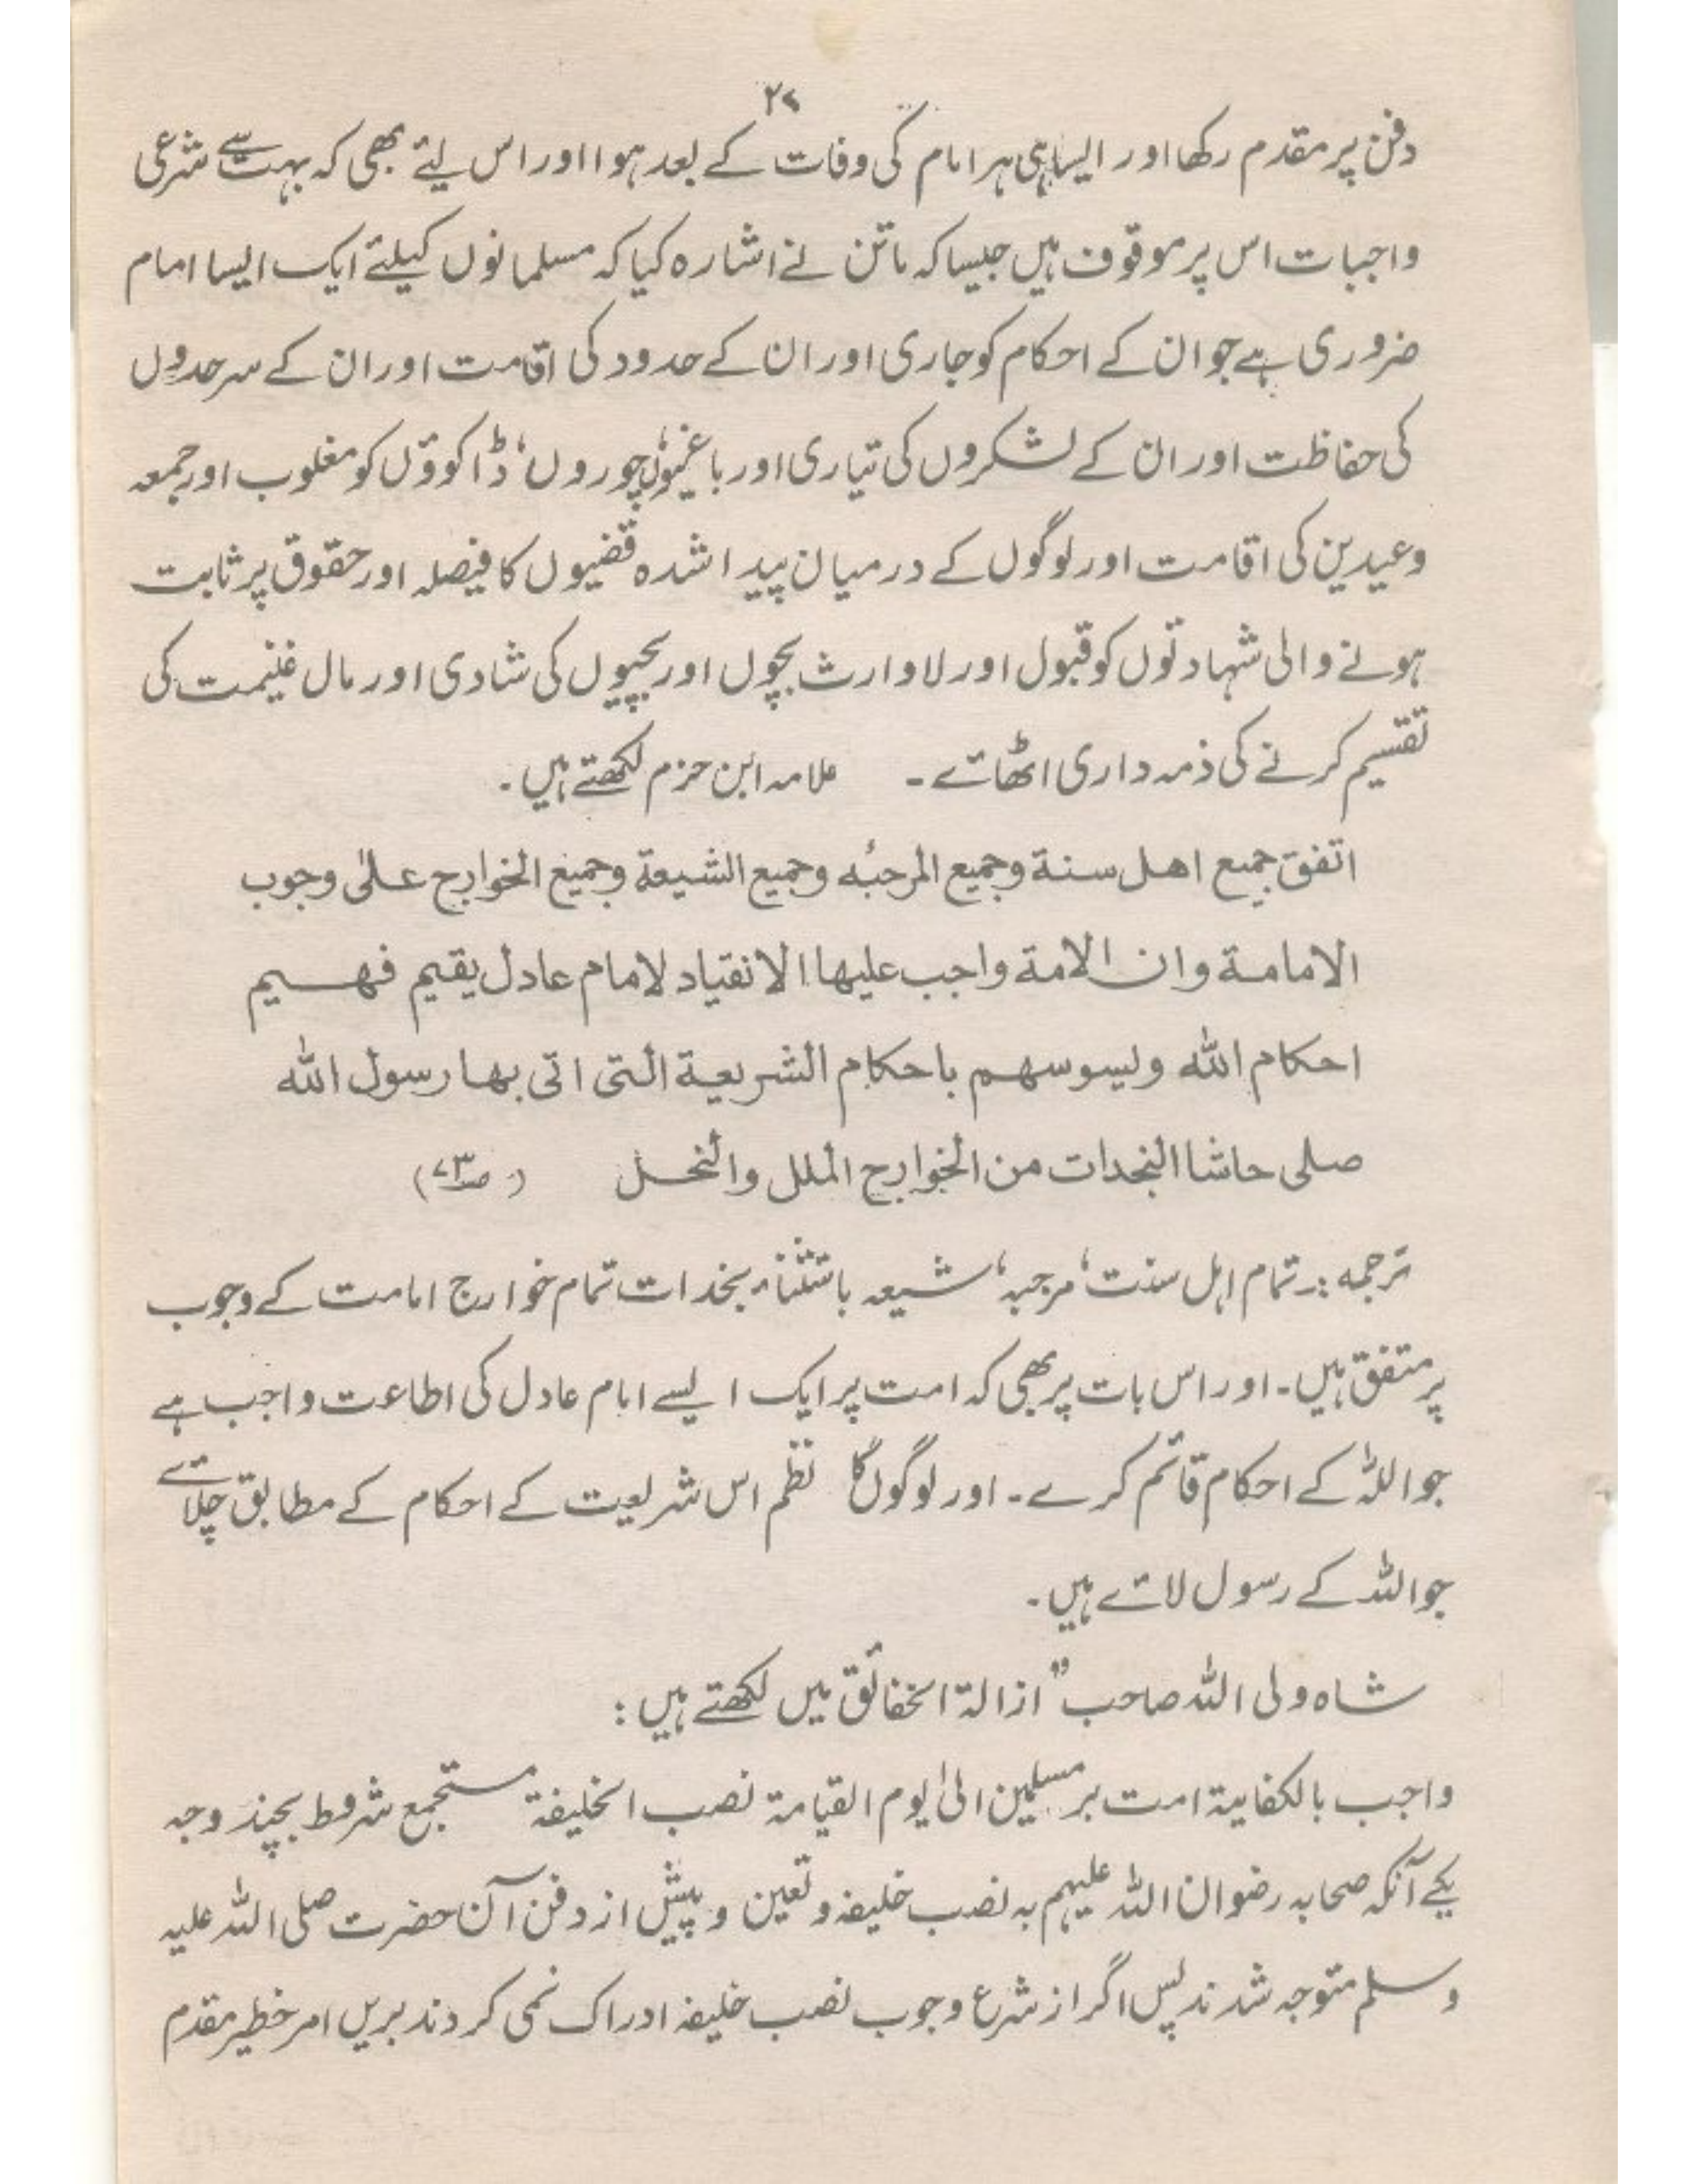 ۲۷
دفن پر مقدم رکھا اور ایسا ہی ہر امام کی وفات کے بعد ہوا اور اس لیئے بھی کہ بہت سے شرعی
واجبات اس پر موقوف ہیں جیسا کہ ماتن نے اشارہ کیا کہ مسلمانوں کیلئے ایک ایسا امام
ضروری ہے جو ان کے احکام کو جاری اور ان کے حدود کی اقامت اور ان کے سرحدوں
کی حفاظت اور ان کے لشکروں کی تیاری اور باغیوں، چوروں، ڈاکوؤں کو مغلوب اور جمعہ
وعیدین کی اقامت اور لوگوں کے درمیان پیدا شدہ قضیوں کا فیصلہ اور حقوق پر ثابت
ہونے والی شہادتوں کو قبول اور لاوارث بچوں اور بچیوں کی شادی اور مال غنیمت کی
تقسیم کرنے کی ذمہ داری اٹھائے۔ علامہ ابن حزم لکھتے ہیں۔
اتفق جمیع اھل سنة وجمیع المرجئه وجمیع الشیعة وجمیع الخوارج علیٰ وجوب
الامامة وان الامة واجب علیھا الانقیاد لامام عادل یقیم فھسیم
احکام اللہ ولیسوسھم باحکام الشریعة التی اتی بھا رسول اللہ
صلی حاشا النجدات من الخوارج الملل والنحل (صـ۷۳)
ترجمہ:۔ تمام اہل سنت، مرجبہ، شیعہ باشثناء بخدات تمام خوارج امامت کے وجوب
پر متفق ہیں۔ اور اس بات پر بھی کہ امت پر ایک ایسے امام عادل کی اطاعت واجب ہے
جو اللہ کے احکام قائم کرے۔ اور لوگوں کا نظم اس شریعت کے احکام کے مطابق چلائے
جو اللہ کے رسول لائے ہیں۔
شاہ ولی اللہ صاحب" ازالۃ الخفائق میں لکھتے ہیں:
واجب بالکفایۃ امت بر مسلمین الیٰ یوم القیامۃ نصب الخلیفۃ مستجمع شروط بچند وجہ
یکے آنکہ صحابہ رضوان اللہ علیہم بہ نصب خلیفہ و تعین و پیش از دفن آن حضرت صلی اللہ علیہ
وسلم متوجہ شدند پس اگر از شرع وجوب نصب خلیفہ ادراک نمی کردند بریں امر خطیر مقدم